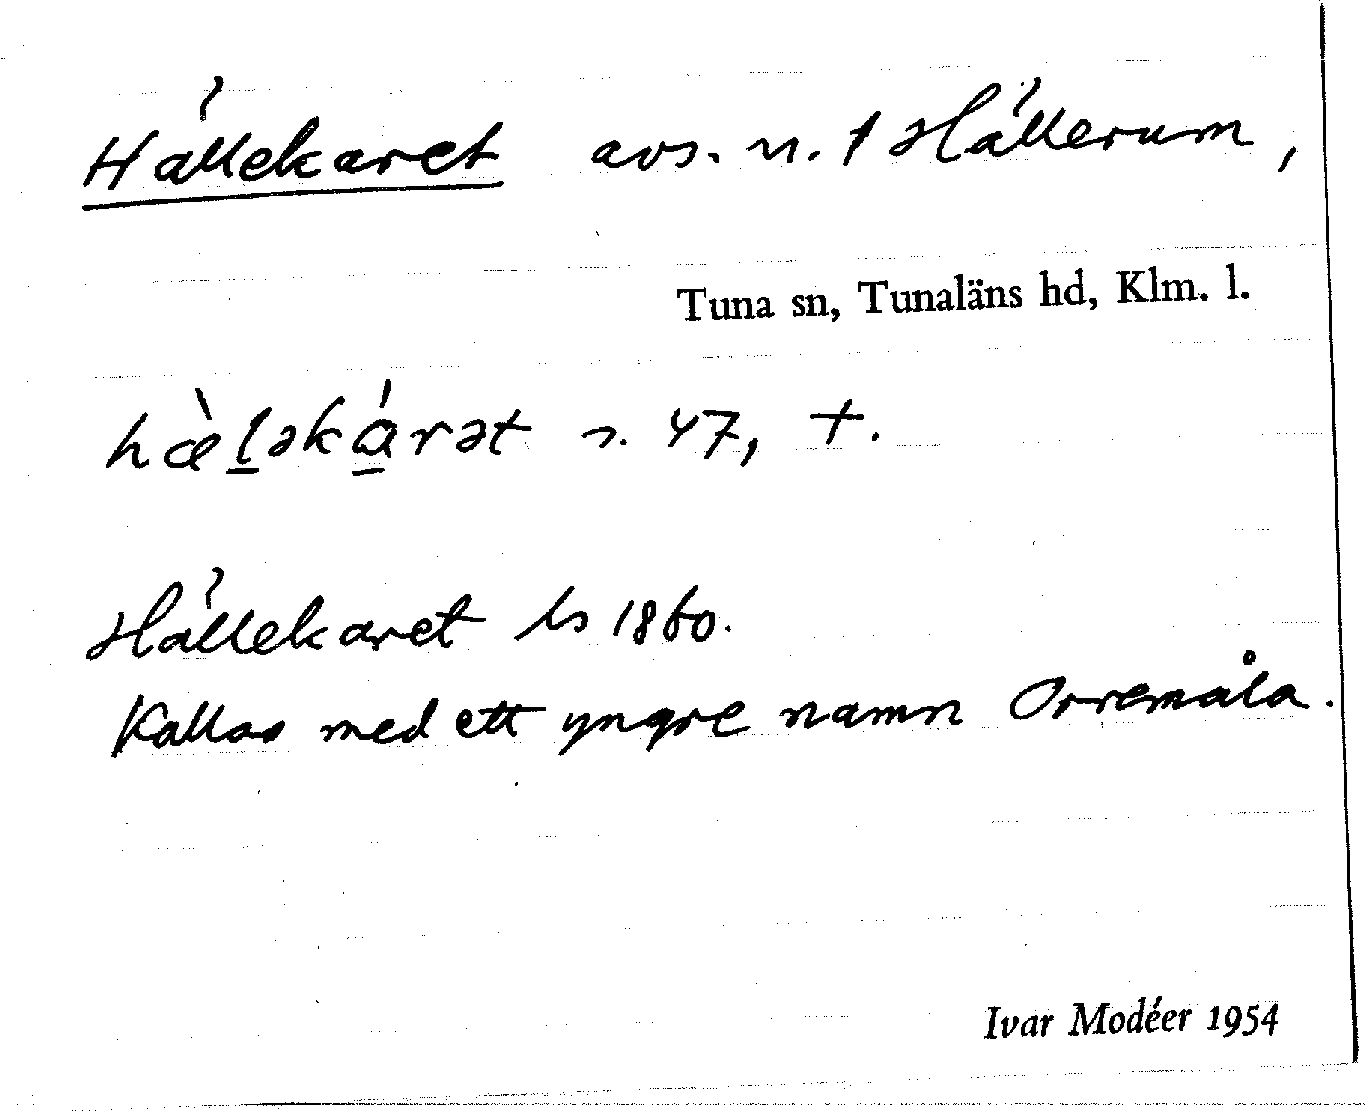 Hällekaret avs. n. 1 Hällerum,
Tuna sn, Tunaläns hd, Klm. l.
hæ̀l̠əká̠rət 47, +.
Hällekaret 1860.
Kallas med ett yngre namn Orremåla.
Ivar Modéer 1954